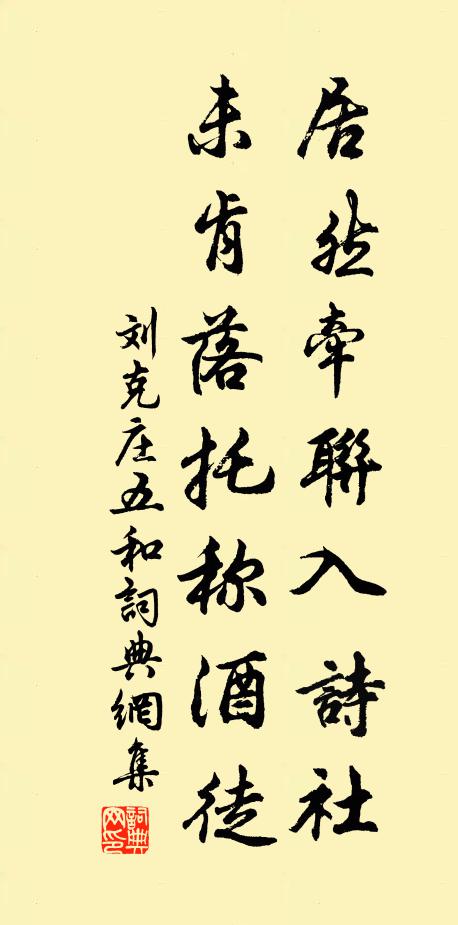 居然牽聯入詩社
未肯落托称酒徒
刘克庄五和詞典網集
詞典网印